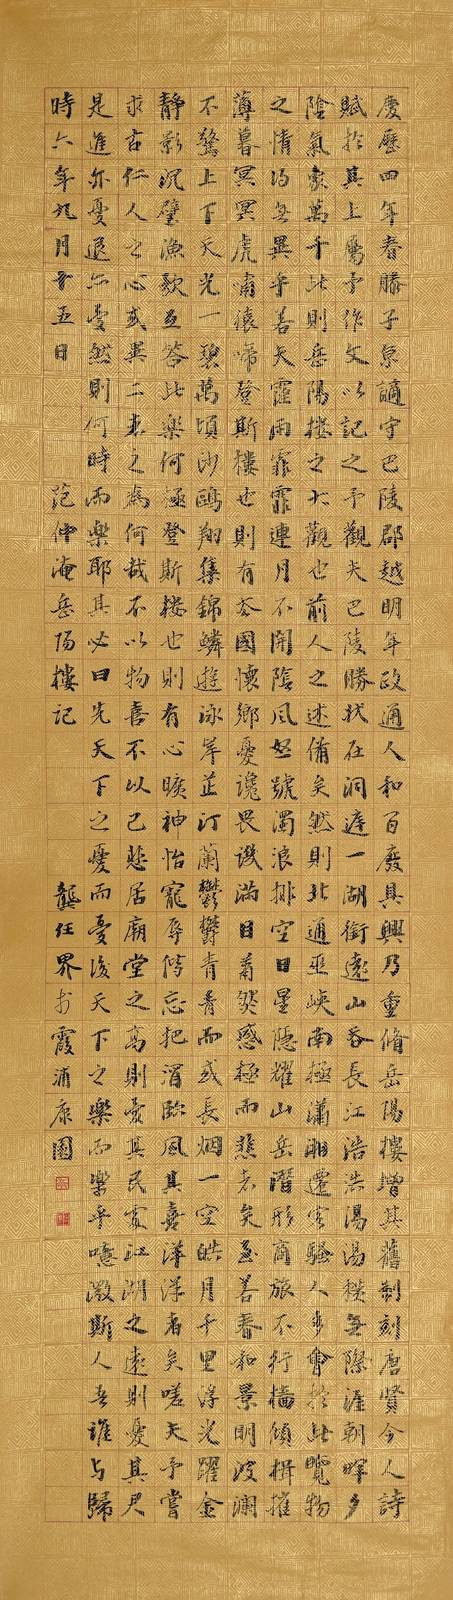 慶歷四年春滕子京謫守巴陵郡越明年政通人和百廢具興乃重脩岳陽樓增其舊制刻唐賢今人詩
賦於其上屬予作文以記之予觀夫巴陵勝狀在洞庭一湖銜遠山吞長江浩浩湯湯橫無際涯朝暉夕
陰氣象萬千此則岳陽樓之大觀也前人之述備矣然則北通巫峽南極瀟湘遷客騷人多會於此覽物
之情得無異乎若夫霪雨霏霏連月不開陰風怒號濁浪排空日星隱耀山岳潛形商旅不行檣傾楫摧
薄暮冥冥虎嘯猿啼登斯樓也則有去國懷鄉憂讒畏譏滿目蕭然感極而悲者矣至若春和景明波瀾
不驚上下天光一碧萬頃沙鷗翔集錦鱗遊泳岸芷汀蘭鬱鬱青青而或長烟一空皓月千里浮光躍金
靜影沉璧漁歌互答此樂何極登斯樓也則有心曠神怡寵辱偕忘把酒臨風其喜洋洋者矣嗟夫予嘗
求古仁人之心或異二者之為何哉不以物喜不以己悲居廟堂之高則憂其民處江湖之遠則憂其君
是進亦憂退亦憂然則何時而樂耶其必曰先天下之憂而憂後天下之樂而樂乎噫微斯人吾誰與歸
時六年九月十五日 范仲淹岳陽樓記 龔任界於霞浦康園